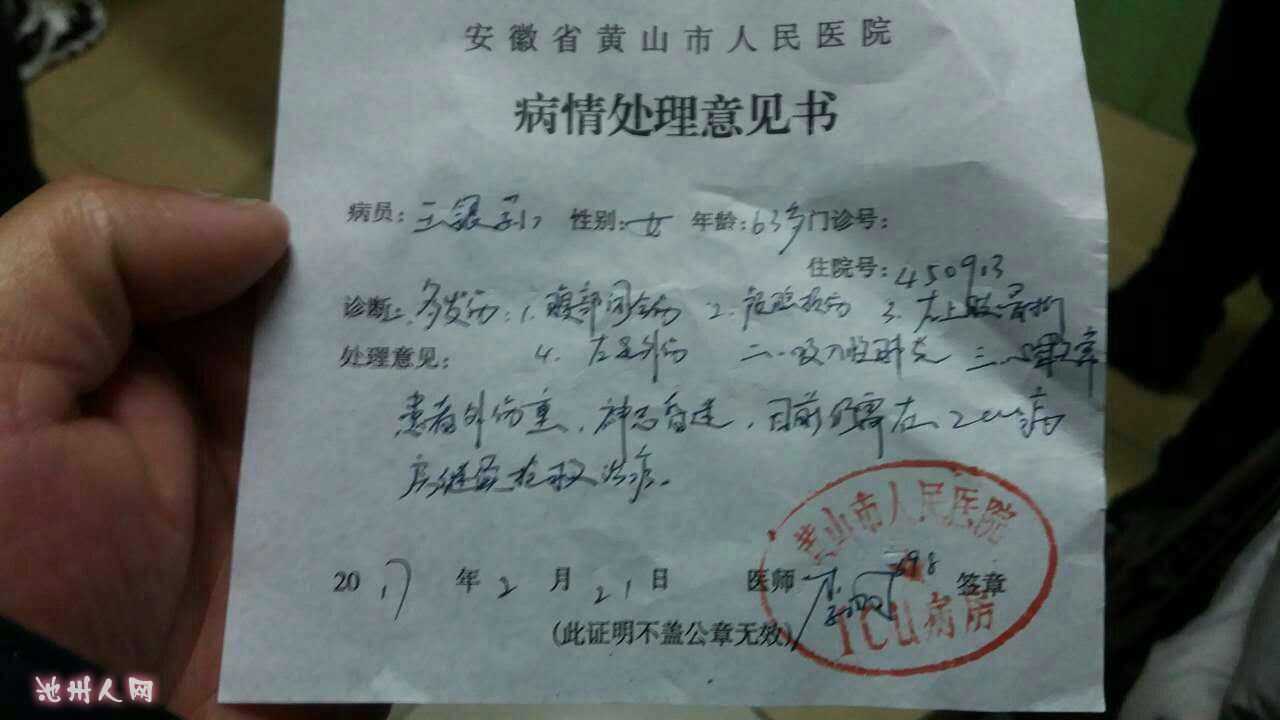 安徽省黄山市人民医院
病情处理意见书
病员: 王银 性别: 女 年龄: 63岁 门诊号:
住院号: 450913
诊断: 一、多发伤: 1. 腹部闭合伤 2. 损伤 3. 左上肢骨折
处理意见: 4. 左足外伤 二、吸入性肺炎 三、
患者外伤重，神志昏迷，目前仍需在ICU病
房继续抢救治疗。
2017年2月21日 医师 698 签章
(此证明不盖公章无效)
黄山市人民医院
ICU病房
池州人网